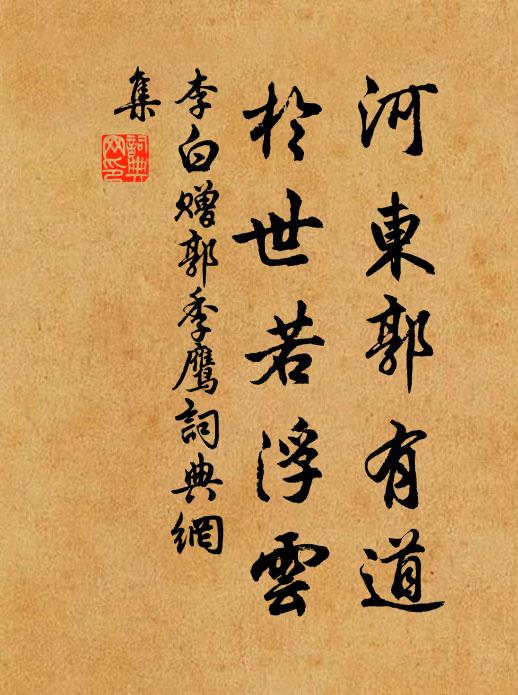 河東郭有道
於世若浮雲
李白贈郭季鷹詞典網
集
詞典
网印